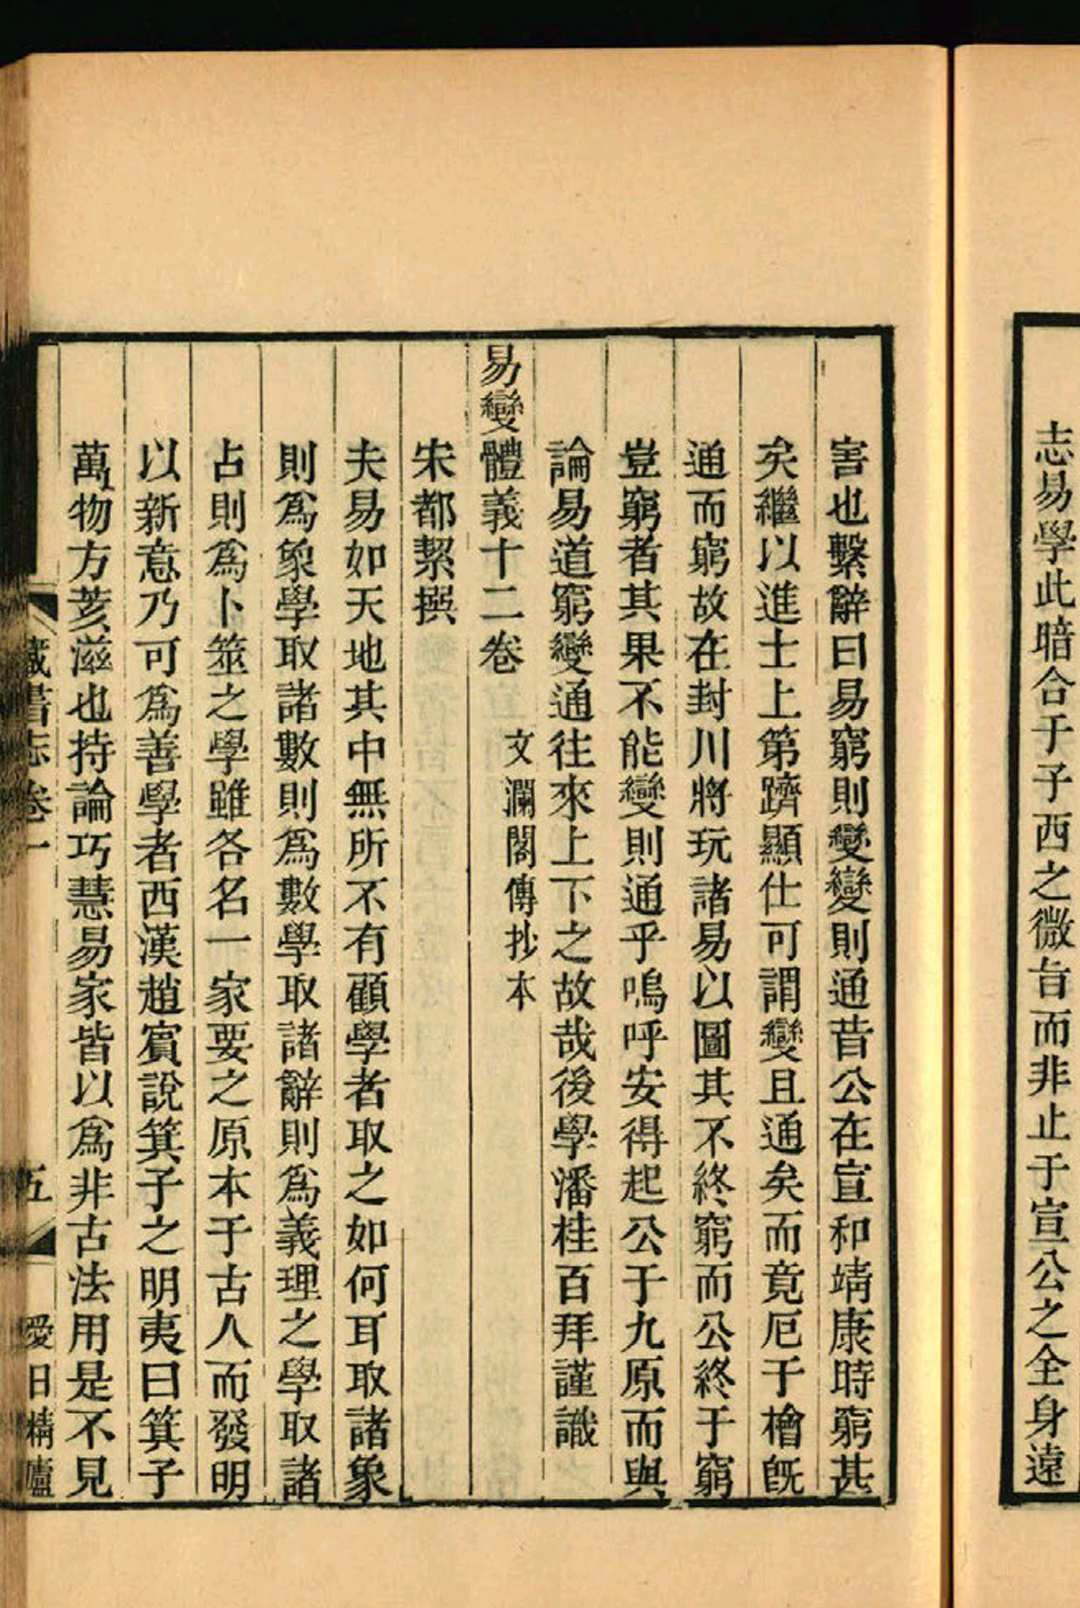 志易學此暗合于子西之微旨而非止于宣公之全身遠
害也繫辭曰易窮則變變則通昔公在宣和靖康時窮甚
矣繼以進士上第躋顯仕可謂變且通矣而竟厄于檜旣
通而窮故在封川將玩諸易以圖其不終窮而公終于窮
豈窮者其果不能變則通乎嗚呼安得起公于九原而與
論易道窮變通往來上下之故哉後學潘桂百拜謹識
易變體義十二卷 文瀾閣傳抄本
宋都絜撰
夫易如天地其中無所不有顧學者取之如何耳取諸象
則爲象學取諸數則爲數學取諸辭則爲義理之學取諸
占則爲卜筮之學雖各名一家要之原本于古人而發明
以新意乃可爲善學者西漢趙賓說箕子之明夷曰箕子
萬物方荄滋也持論巧慧易家皆以爲非古法用是不見
藏書志卷一 五 愛日精廬